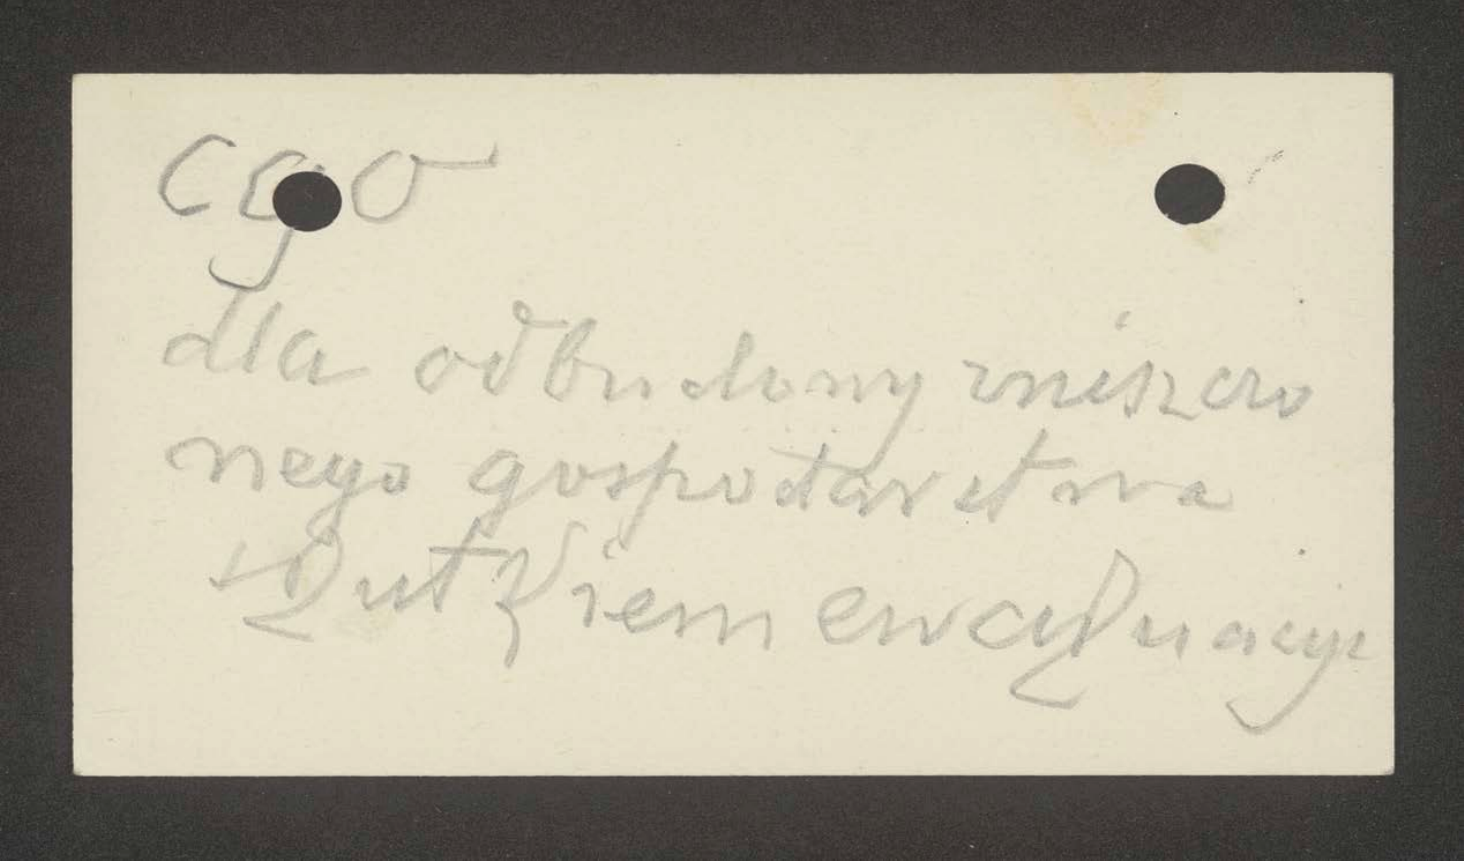 cego
dla odbudowy zniszczo
nego gospodarstwa
skutkiem ewakuacyi